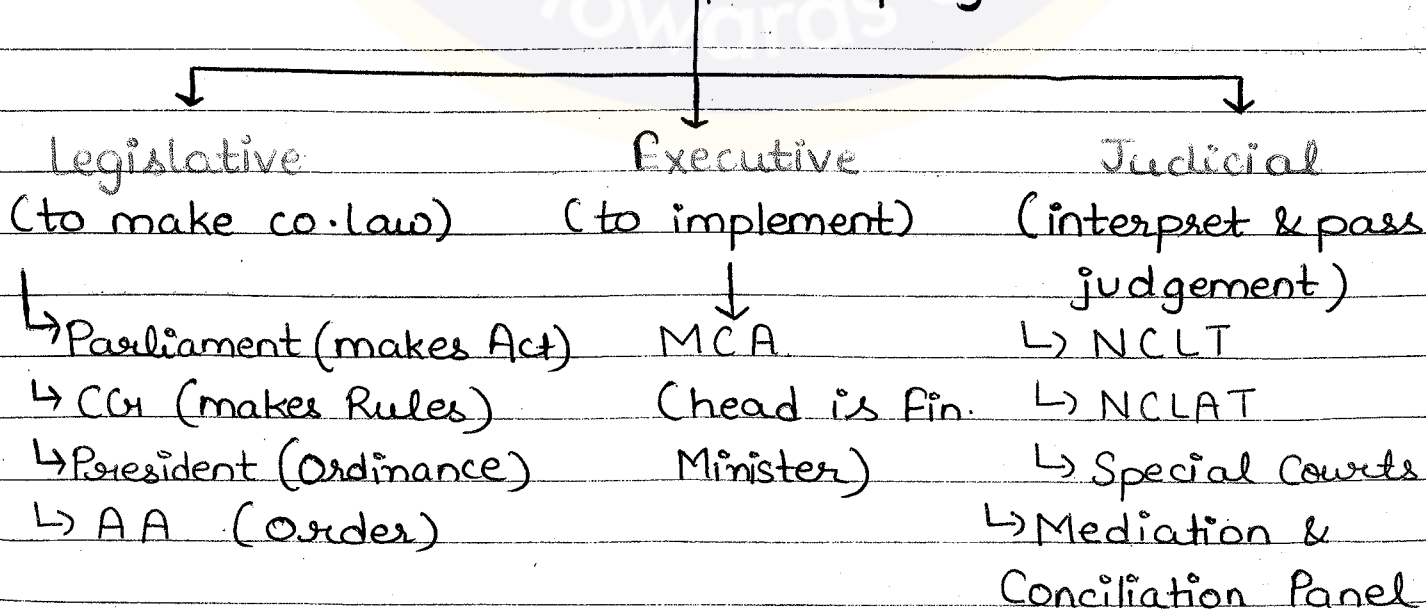 Towards
Legislative
(to make co. law)
↳ Parliament (makes Act)
↳ CG (makes Rules)
↳ President (Ordinance)
↳ AA (Order)
Executive
(to implement)
MCA
(head is Fin.
Minister)
Judicial
(interpret & pass
judgement)
↳ NCLT
↳ NCLAT
↳ Special Courts
↳ Mediation &
Conciliation Panel